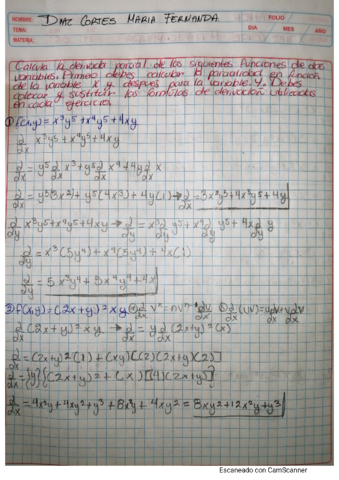 NOMBRE: DIAZ CORTES MARIA FERNANDA FOLIO
TEMA: DIA MES AÑO
MATERIA:
Calcula la derivada parcial de las siguientes funciones de dos
variables. Primero debes calcular la parcialidad en función
de la variable X y después para la variable Y. Debes
colocar y sustituir las fórmulas de derivación utilizadas
en cada ejercicio
1) f(x,y) = x³y⁵ + x⁴y⁵ + 4xy
∂/∂x x³y⁵ + x⁴y⁵ + 4xy
∂/∂x = y⁵ ∂/∂x x³ + y⁵ ∂/∂x x⁴ + 4y ∂/∂x x
∂/∂x = y⁵(3x²) + y⁵(4x³) + 4y(1) → ∂/∂x = 3x²y⁵ + 4x³y⁵ + 4y
∂/∂y x³y⁵ + x⁴y⁵ + 4xy → ∂/∂y = x³ ∂/∂y y⁵ + x⁴ ∂/∂y y⁵ + 4x ∂/∂y y
∂/∂y = x³(5y⁴) + x⁴(5y⁴) + 4x(1)
∂/∂y = 5x³y⁴ + 5x⁴y⁴ + 4x
2) f(x,y) = (2x+y)² xy
∂/∂x (2x+y)² xy → ∂/∂x = y ∂/∂x (2x+y)² (x)
∂/∂x = (2x+y)²(1) + (xy)[(2)(2x+y)(2)]
∂/∂x = 4x²y + 4xy² + y³ + 8x²y + 4xy² = 8xy² + 12x²y + y³
Escaneado con CamScanner